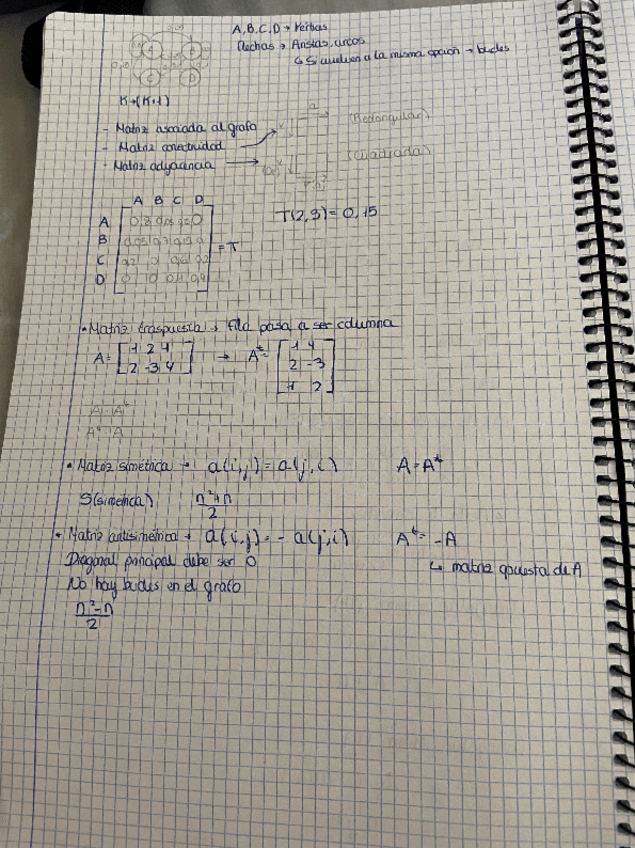 A, B, C, D → Vértices
flechas → Aristas, arcos
↳ Si vuelven a la misma opción → bucles
A B C D
K → (K+1)
- Matriz asociada al grafo
- Matriz conectividad
(Rectangular)
- Matriz adyacencia
(Cuadrada)
A B C D
A
B
C
D
= T
T(2,3) = 0,15
• Matriz traspuesta → Fila pasa a ser columna
A = [ 1 2 4
2 -3 4 ]
→ Aᵗ = [ 1 4
2 -3
1 2 ]
A · Aᵗ
Aᵗ · A
• Matriz simétrica → a(i,j) = a(j,i) A = Aᵗ
S(simétrica) n²+n / 2
• Matriz antisimétrica → a(i,j) = - a(j,i) Aᵗ = -A
Diagonal principal debe ser 0
↳ matriz opuesta de A
No hay bucles en el grafo
n²-n / 2